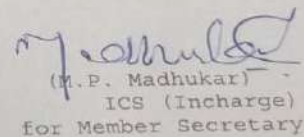 (M.P. Madhukar)
ICS (Incharge)
for Member Secretary